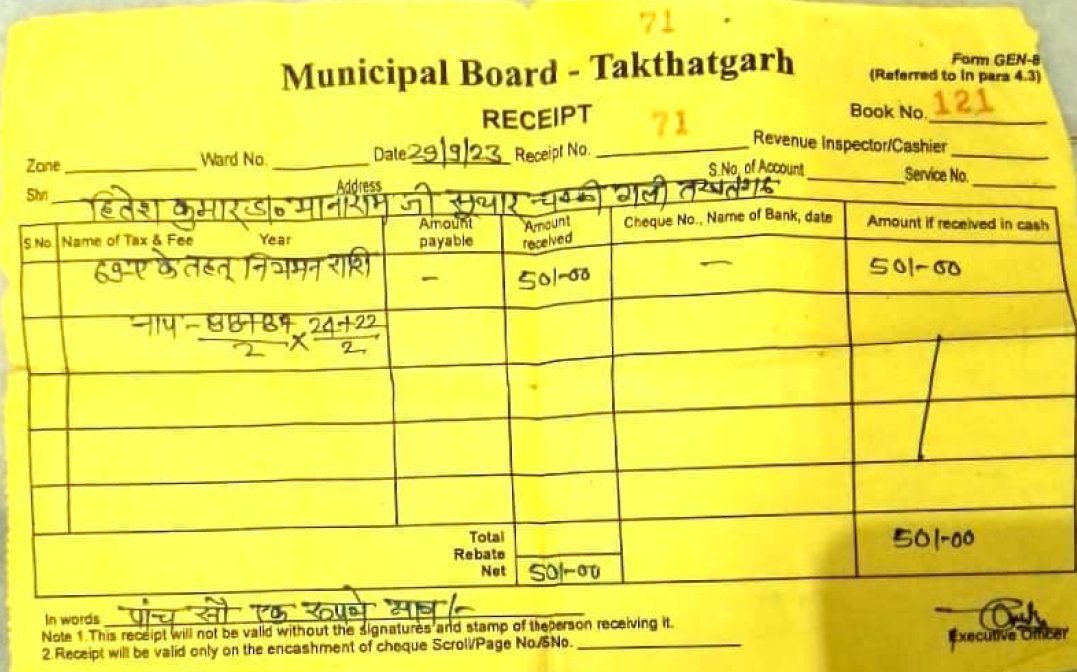 71
Municipal Board - Takthatgarh
Form GEN-8
(Referred to in para 4.3)
RECEIPT
Book No. 121
Zone Ward No. Date 29/9/23 Receipt No. 71 Revenue Inspector/Cashier
S.No. of Account Service No.
Shri Address
हितेश कुमार S/o मानाराम जी सुथार चक्की गली तखतगढ
S.No. Name of Tax & Fee Year Amount payable Amount received Cheque No., Name of Bank, date Amount if received in cash
69-ए के तहत् नियमन राशि - 501-00 - 501-00
नाप - 2 × 24+22/2
Total 501-00
Rebate
Net 501-00
In words पांच सौ एक रूपये मात्र /-
Note 1.This receipt will not be valid without the signatures and stamp of theperson receiving it.
2 Receipt will be valid only on the encashment of cheque Scroll/Page No./SNo.
Executive Officer